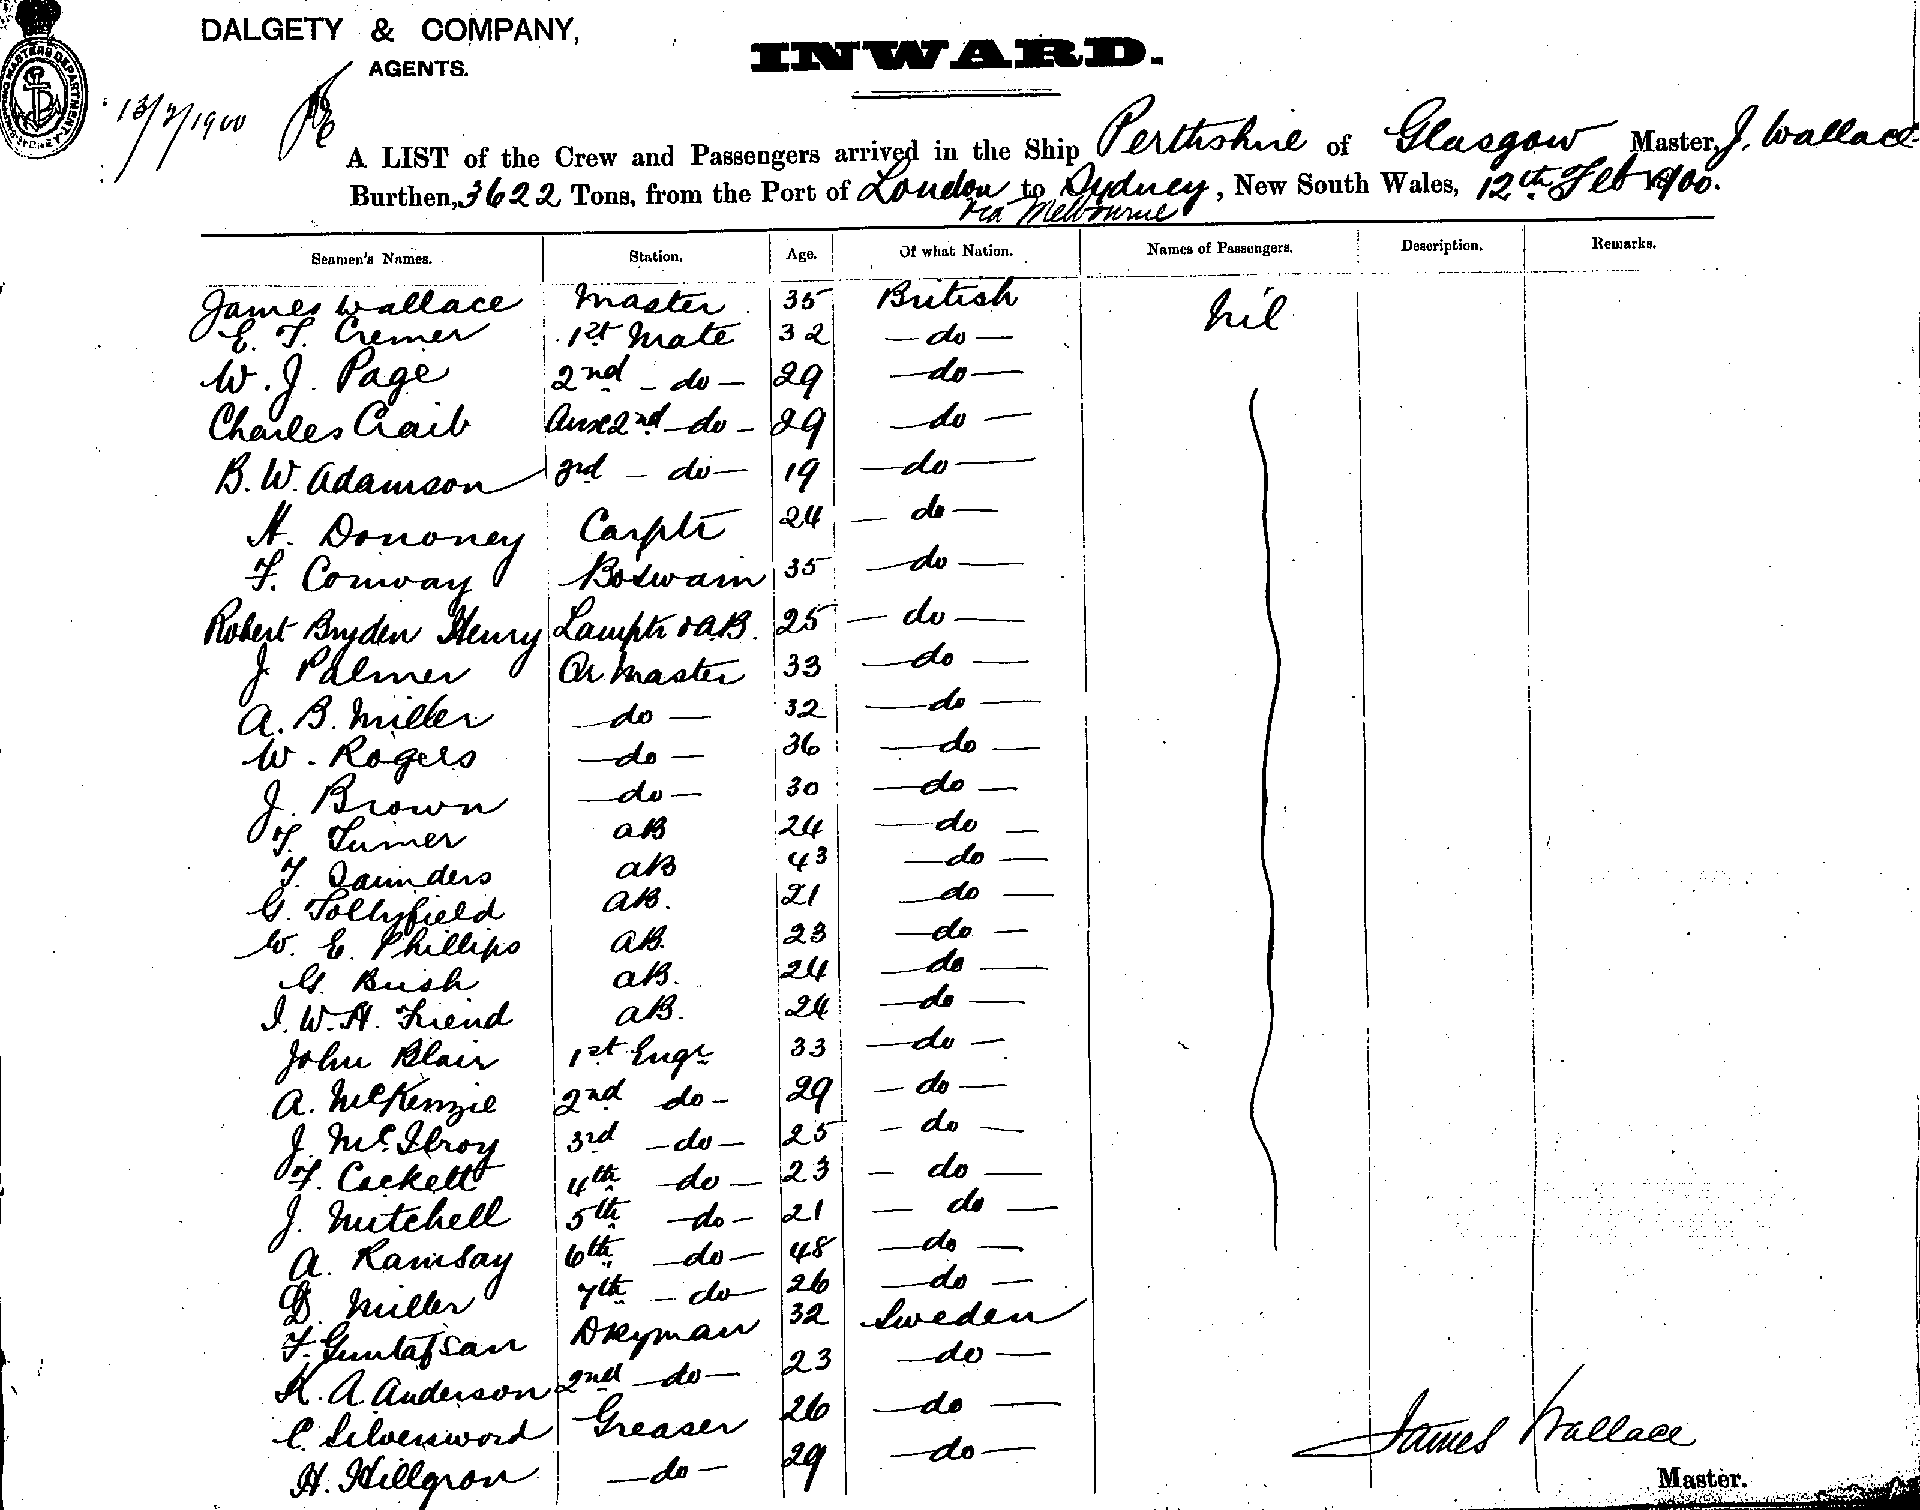 DALGETY & COMPANY,
AGENTS.
INWARD.
13/2/1900
A LIST of the Crew and Passengers arrived in the Ship Perthshire of Glasgow Master, J. Wallace
Burthen, 3622 Tons, from the Port of London to Sydney, New South Wales, 12th Feb 1900.
via Melbourne
Seamen's Names. Station. Age. Of what Nation. Names of Passengers. Description. Remarks.
James Wallace Master 35 British Nil
E. T. Cremer 1st Mate 32 - do -
W. J. Page 2nd - do - 29 - do -
Charles Craib Aux 2nd - do - 29 - do -
B. W. Adamson 3rd - do - 19 - do -
H. Dononey Carptr 24 - do -
F. Conway Boswain 35 - do -
Robert Bryden Henry Lamptr & AB. 25 - do -
J. Palmer Qr Master 33 - do -
A. B. Miller - do - 32 - do -
W. Rogers - do - 36 - do -
J. Brown - do - 30 - do -
T. Turner AB 24 - do -
T. Saunders AB 43 - do -
G. Tollyfield AB. 21 - do -
W. E. Phillips AB. 23 - do -
G. Bush AB. 24 - do -
I. W. H. Friend AB. 24 - do -
John Blair 1st Engr 33 - do -
A. McKenzie 2nd do - 29 - do -
J. McIlroy 3rd - do - 25 - do -
F. Cackett 4th - do - 23 - do -
J. Mitchell 5th - do - 21 - do -
A. Ramsay 6th - do - 48 - do -
D. Miller 7th - do - 26 - do -
F. Gustafsan Dkyman 32 Sweden
K. A. Anderson 2nd - do - 23 - do -
C. Silvenword Greaser 26 - do -
H. Hillgron - do - 29 - do -
James Wallace
Master.